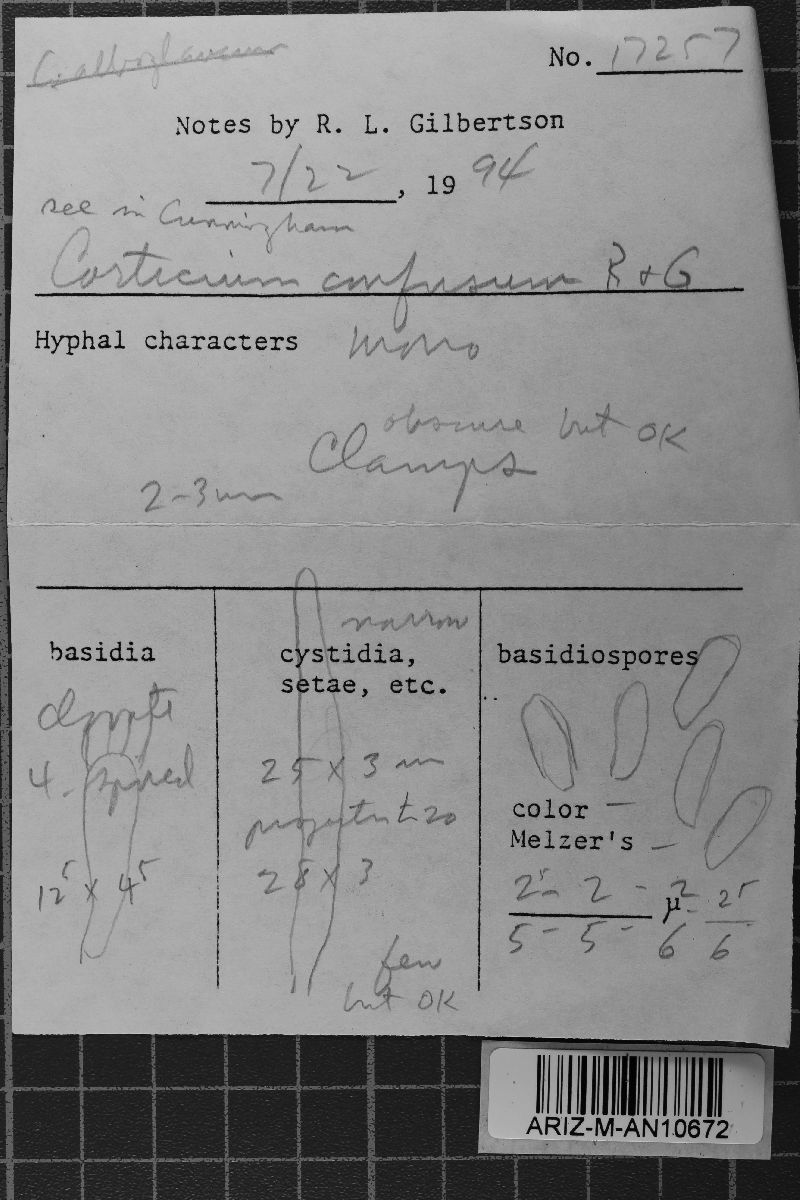 C. alboglaucum
No. 17257
Notes by R. L. Gilbertson
7/22, 1994
see in Cunningham
Corticium confusum R + G
Hyphal characters mono
obscure but OK
Clamps
2-3 um
basidia
4-spored
12⁵ x 4⁵
narrow
cystidia,
setae, etc.
25 x 3
to 20
28 x 3
few
but OK
basidiospores
color -
Melzer's -
2⁵- 2 - 2 µ - 2⁵
5 - 5 - 6 6
ARIZ-M-AN10672